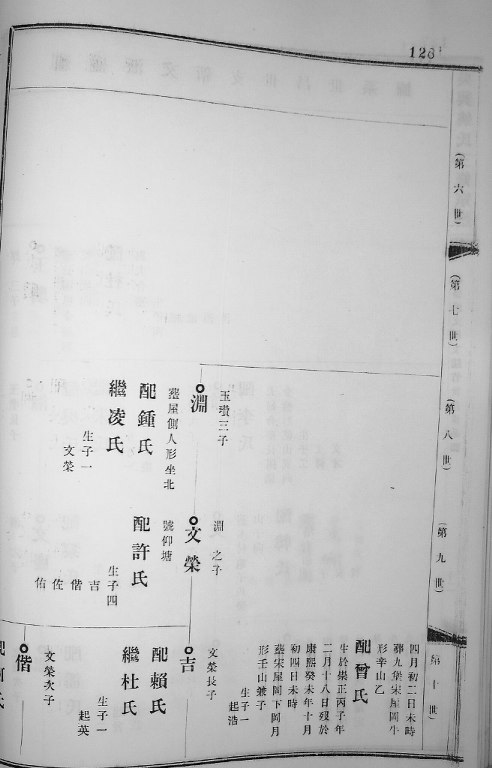 126
(第六世)
(第七世)
(第八世)
(第九世)
(第十世)
玉瓚三子
淵
葬屋側人形坐北
配鍾氏
繼凌氏
生子一
文榮
淵之子
文榮
號仰塘
配許氏
生子四
吉
偕
佐
佑
四月初二日未時
葬九堡宋屋岡牛
形辛山乙
配曾氏
生於崇正丙子年
二月十八日歿於
康熙癸未年十月
初四日未時
葬宋屋岡下岡月
形壬山兼子
生子一
起浩
文榮長子
吉
配賴氏
繼杜氏
生子一
起英
文榮次子
偕